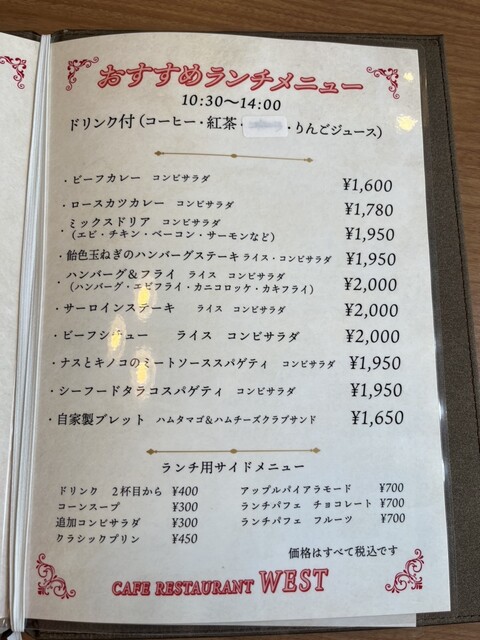 おすすめランチメニュー
10:30〜14:00
ドリンク付(コーヒー・紅茶・ ・りんごジュース)
・ビーフカレー コンビサラダ ¥1,600
・ロースカツカレー コンビサラダ ¥1,780
・ミックスドリア コンビサラダ ¥1,950
(エビ・チキン・ベーコン・サーモンなど)
・飴色玉ねぎのハンバーグステーキ ライス・コンビサラダ ¥1,950
・ハンバーグ&フライ ライス コンビサラダ ¥2,000
(ハンバーグ・エビフライ・カニコロッケ・カキフライ)
・サーロインステーキ ライス コンビサラダ ¥2,000
・ビーフシチュー ライス コンビサラダ ¥2,000
・ナスとキノコのミートソーススパゲティ コンビサラダ ¥1,950
・シーフードタラコスパゲティ コンビサラダ ¥1,950
・自家製ブレット ハムタマゴ&ハムチーズクラブサンド ¥1,650
ランチ用サイドメニュー
ドリンク 2杯目から ¥400
コーンスープ ¥300
追加コンビサラダ ¥300
クラシックプリン ¥450
アップルパイアラモード ¥700
ランチパフェ チョコレート ¥700
ランチパフェ フルーツ ¥700
価格はすべて税込です
CAFE RESTAURANT WEST